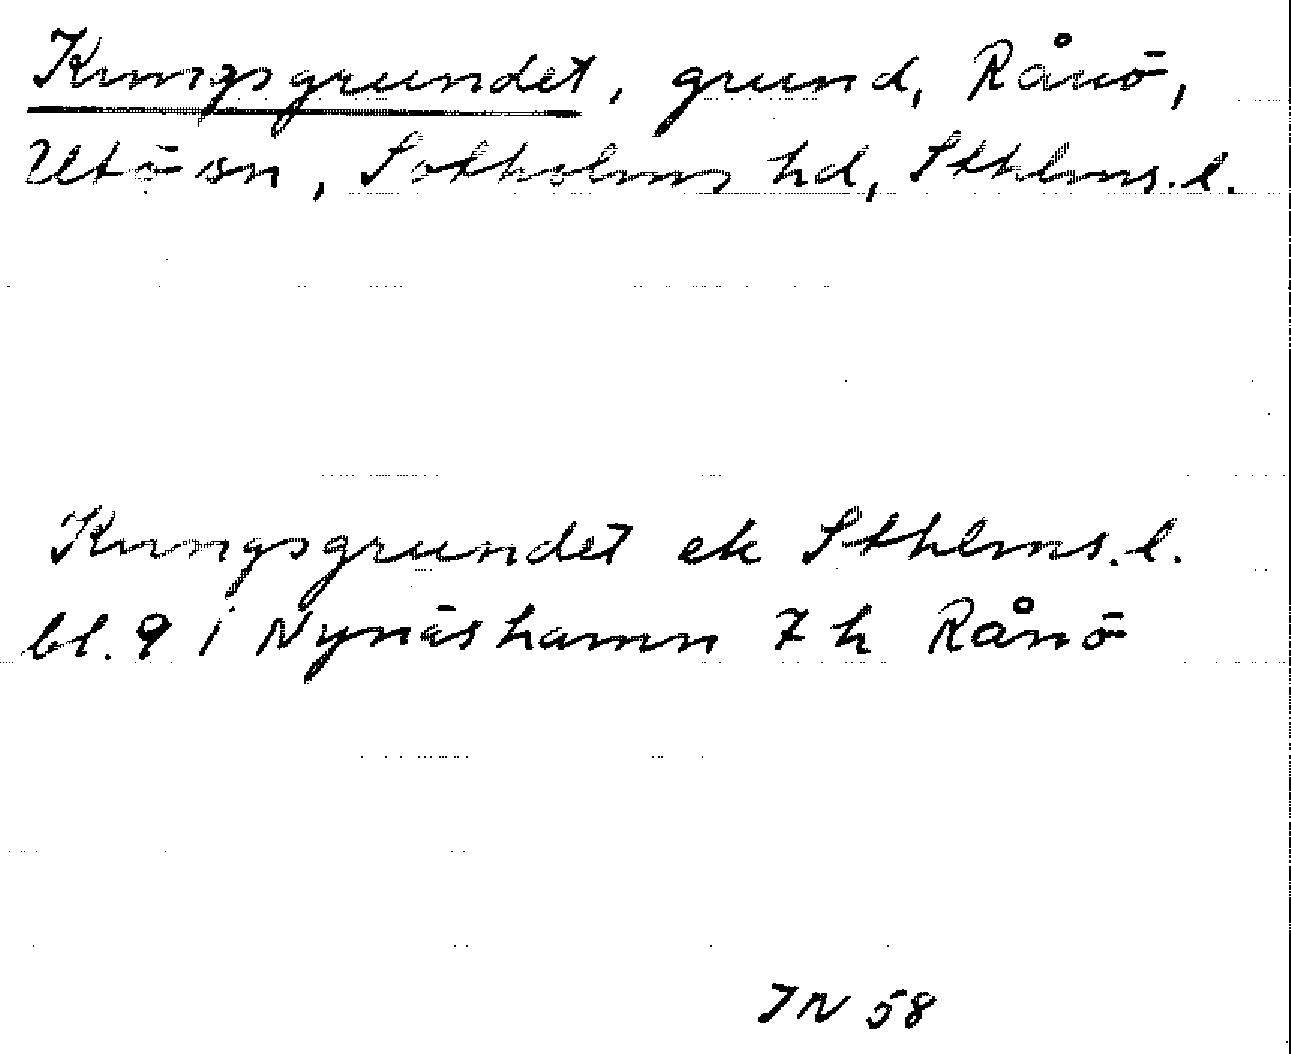 Kungsgrundet, grund, Rånö,
Utö sn, Sotholms hd, Sthlms. l.
Kungsgrundet ek Sthlms. l.
bl. 9 i Nynäshamn 7 h Rånö
IN 58